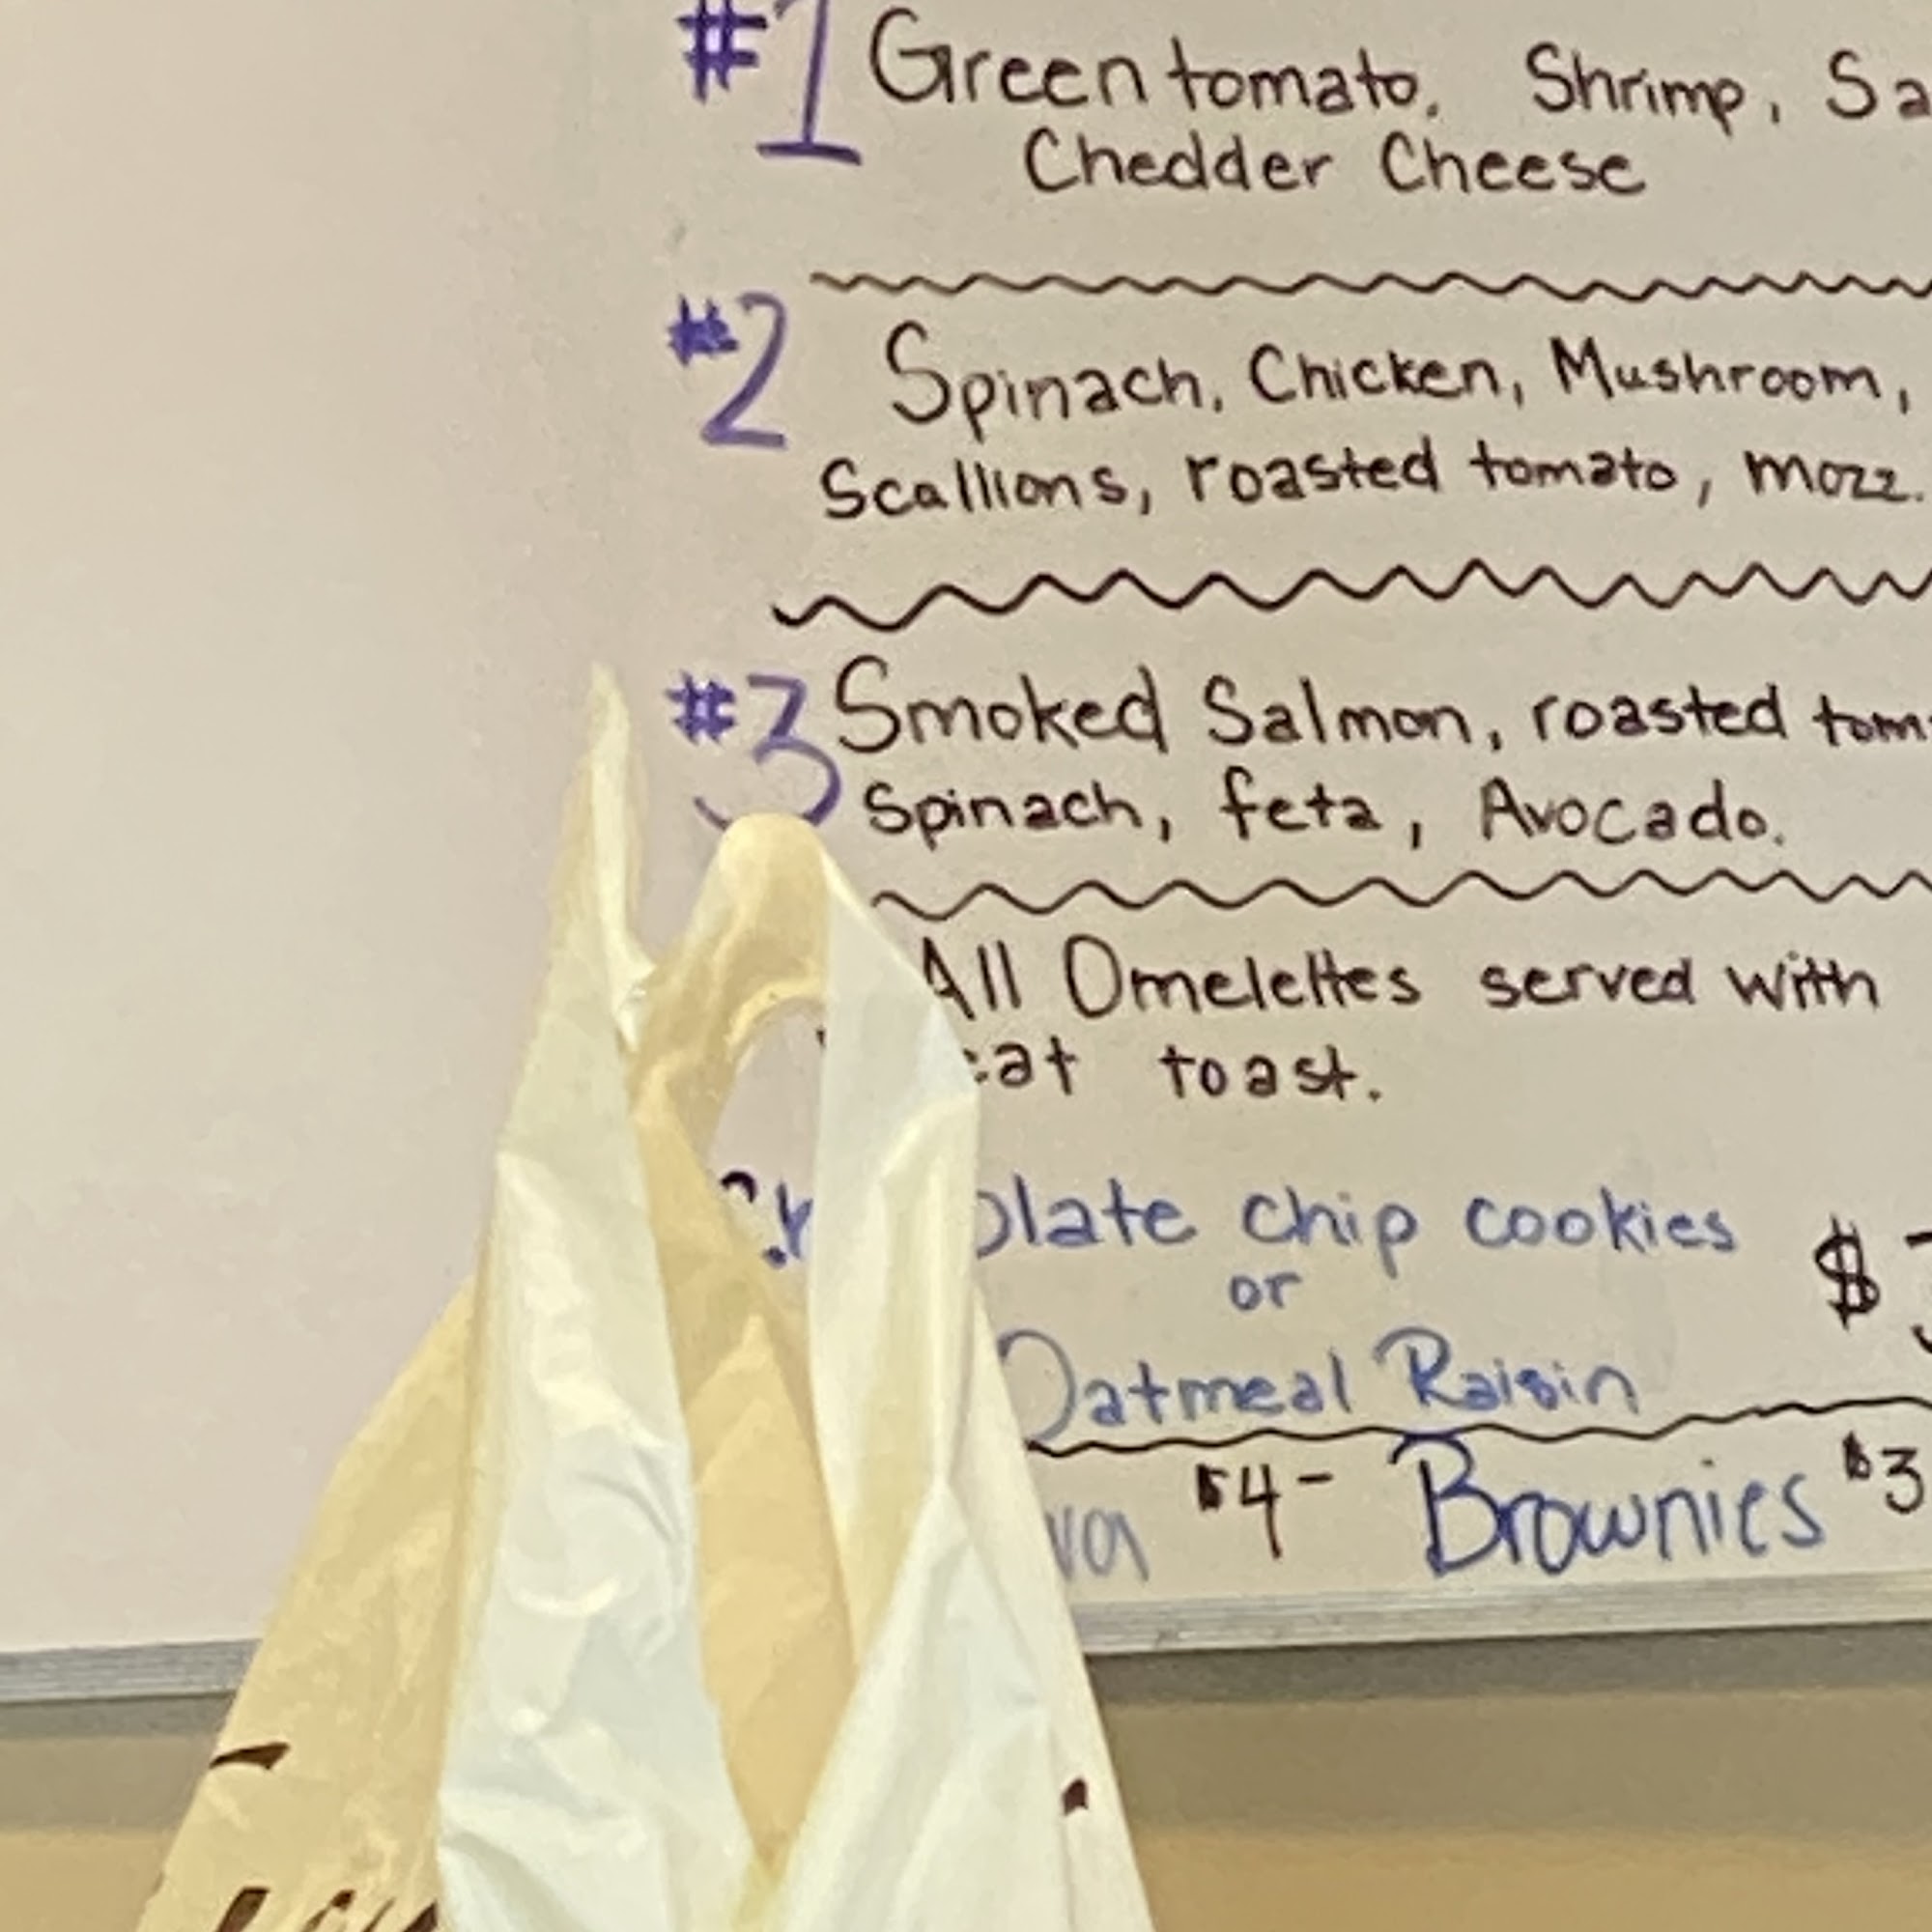 #1 Green tomato, Shrimp,
Chedder Cheese
#2 Spinach, Chicken, Mushroom,
Scallions, roasted tomato, mozz.
#3 Smoked Salmon, roasted
Spinach, feta, Avocado.
All Omelettes served with
toast.
chip cookies
or
Oatmeal Raisin
$4- Brownies $3